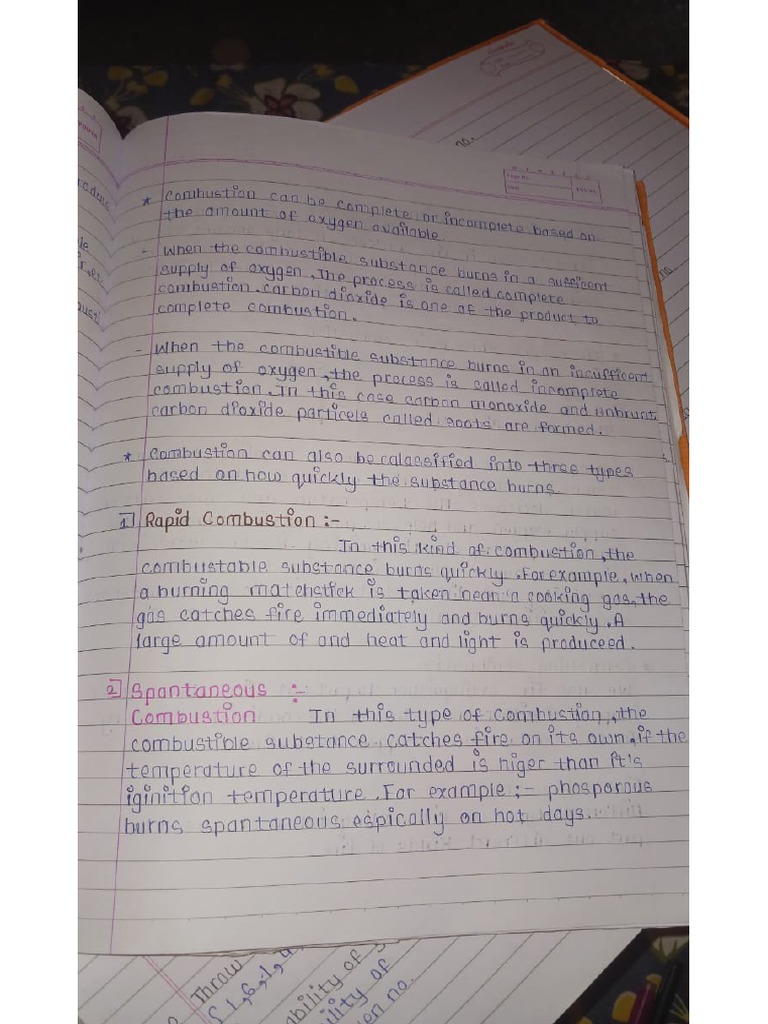 * Combustion can be complete or incomplete based on
the amount of oxygen available.
- When the combustible substance burns in a sufficent
supply of oxygen, The process is called complete
combustion. carbon dioxide is one of the product to
complete combustion.
- When the combustible substance burns in an insufficent
supply of oxygen, the process is called incomplete
combustion. In this case carbon monoxide and unbrunt
carbon dioxide particels called soots are formed.
* Combustion can also be calassified into three types
based on how quickly the substance burns.
1] Rapid Combustion :-
In this kind of combustion, the
combustable substance burns quickly. For example, when
a burning matchstick is taken near a cooking gas, the
gas catches fire immediately and burns quickly. A
large amount of and heat and light is produceed.
2] Spontaneous :-
Combustion In this type of combustion, the
combustible substance catches fire on its own, if the
temperature of the surrounded is higer than it's
iginition temperature. For example :- phosporous
burns spantaneous aspically on hot days.
no.
no
Throw
1, 6, 1, 4
bility of
ility of
on no.